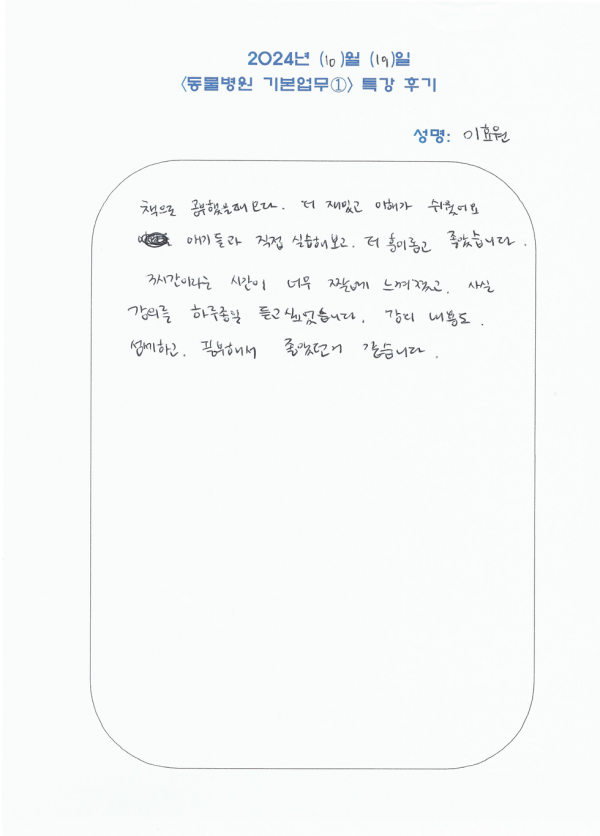 2024년 (10)월 (19)일
<동물병원 기본업무①> 특강 후기
성명: 이효원
책으로 공부했을때 보다. 더 재밌고 이해가 쉬웠어요
애기들과 직접 실습해보고. 더 흥미롭고 좋았습니다.
3시간이라는 시간이 너무 짧게 느껴졌고. 사실
강의를 하루종일 듣고싶었습니다. 강의 내용도.
섬세하고. 풍부해서 좋았던거 같습니다.